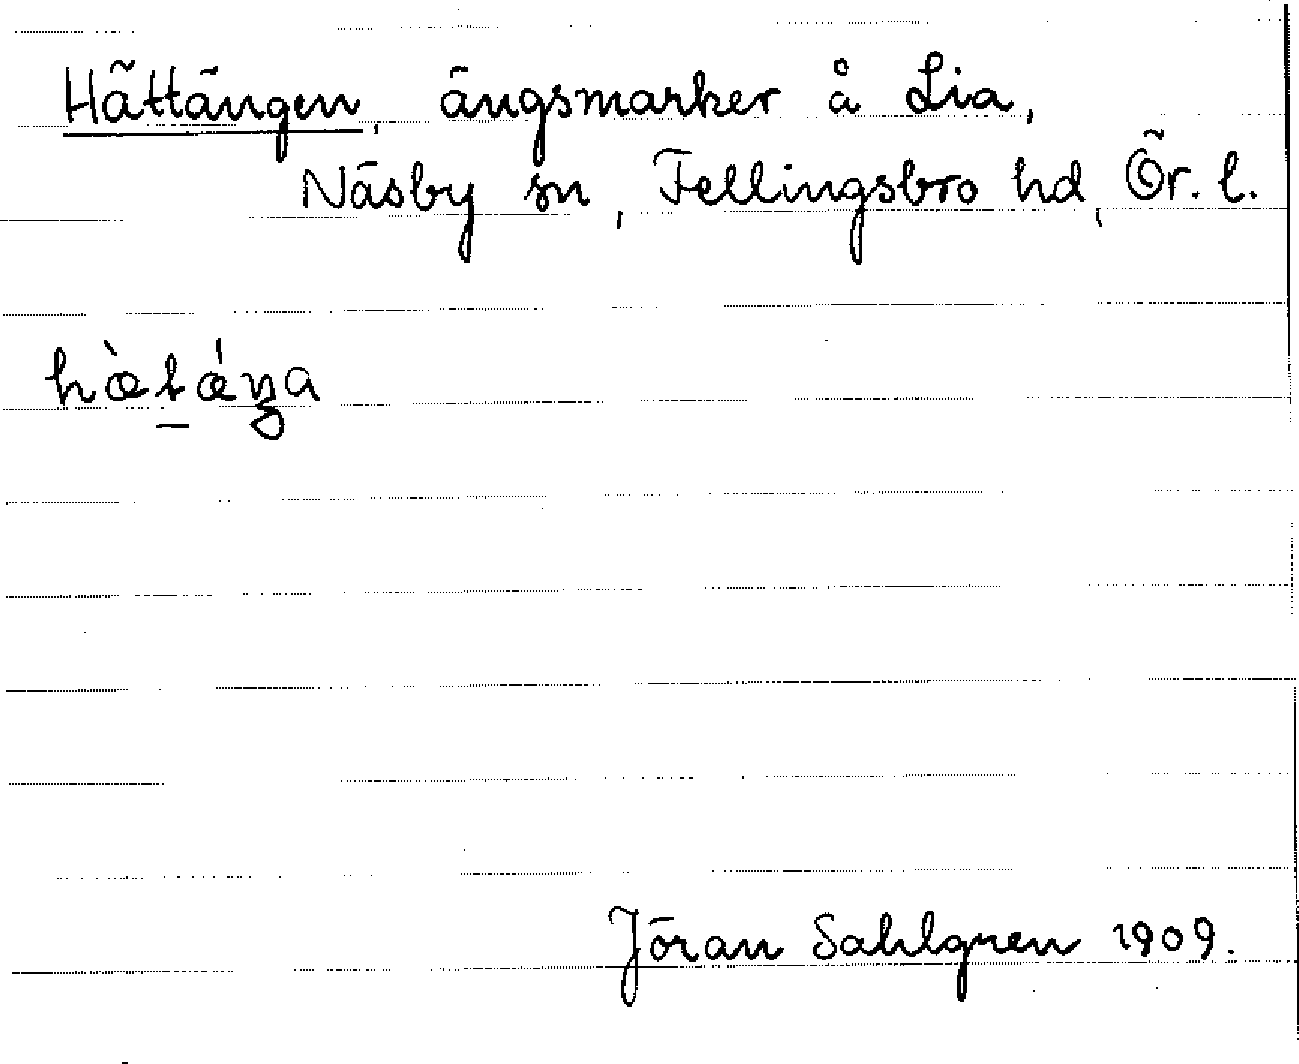 Hättängen, ängsmarker å Lia,
Näsby sn, Fellingsbro hd, Ör. l.
hæ̀tǽŋa
Jöran Sahlgren 1909.